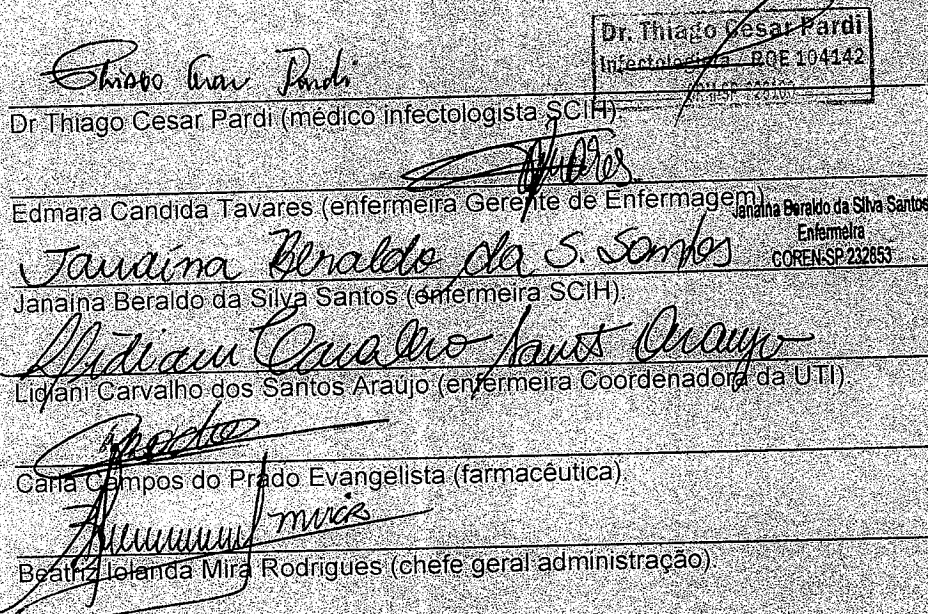 Dr. Thiago Cesar Pardi
Infectologista RQE 104142
Thiago Cesar Pardi
Dr Thiago Cesar Pardi (médico infectologista SCIH).
Edmara Candida Tavares (enfermeira Gerente de Enfermagem)
Janaina Beraldo da Silva Santos
Enfermeira
COREN-SP 232853
Janaina Beraldo da S. Santos
Janaina Beraldo da Silva Santos (enfermeira SCIH).
Lidiani Carvalho Santos Araujo
Lidiani Carvalho dos Santos Araújo (enfermeira Coordenadora da UTI).
Carla Campos do Prado Evangelista (farmacêutica).
Beatriz Iolanda Mira Rodrigues (chefe geral administração).